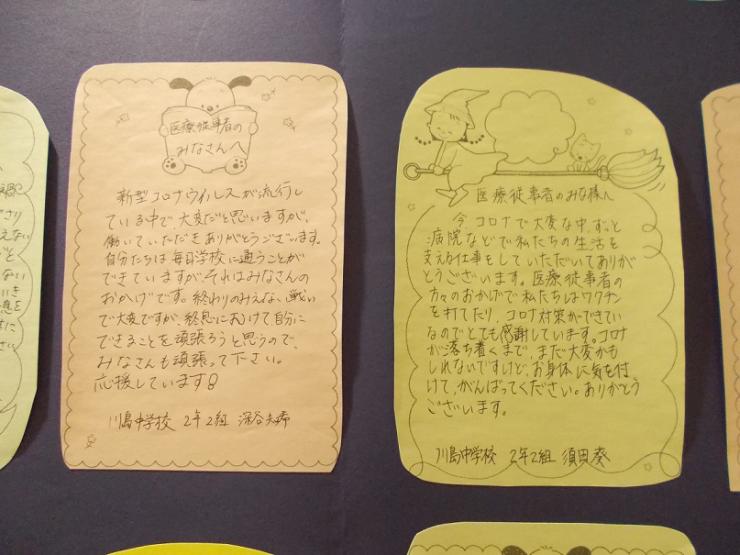 医療従事者の
みなさんへ
新型コロナウイルスが流行し
ている中で、大変だと思いますが、
働いていただきありがとうございます。
自分たちは毎日学校に通うことが
できていますが、それはみなさんの
おかげです。終わりのみえない戦い
で大変ですが、終息にむけて自分に
できることを頑張ろうと思うので、
みなさんも頑張って下さい。
応援しています!
川島中学校 2年2組 深谷
医療従事者のみな様へ
今コロナで大変な中、ずっと
病院などで私たちの生活を
支える仕事をしていただいてありが
とうございます。医療従事者の
方々のおかげで私たちはワクチン
を打てたり、コロナ対策ができてい
るのでとても感謝しています。コロナ
が落ち着くまで、まだ大変かも
しれないですけど、お身体に気を付
けて、がんばってください。ありがとう
ございます。
川島中学校 2年2組 須田 葵